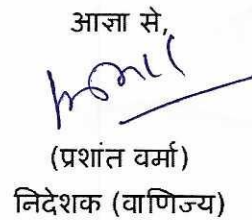 आज्ञा से,
(प्रशांत वर्मा)
निदेशक (वाणिज्य)